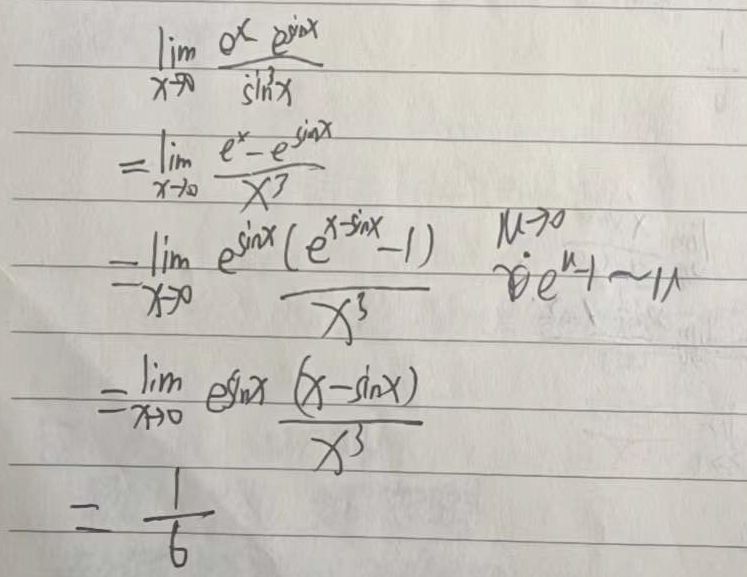 lim x→0 (e^x - e^sinx) / sin³x
= lim x→0 (e^x - e^sinx) / x³
= lim x→0 e^sinx (e^(x-sinx) - 1) / x³ μ→0 e^μ-1 ~ μ
= lim x→0 e^sinx (x-sinx) / x³
= 1/6